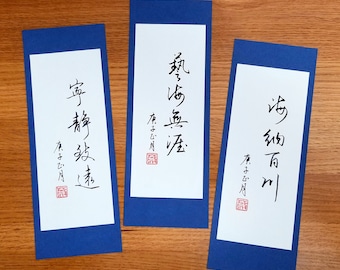 寧靜致遠
庚子正月
藝海無涯
庚子正月
海納百川
庚子正月